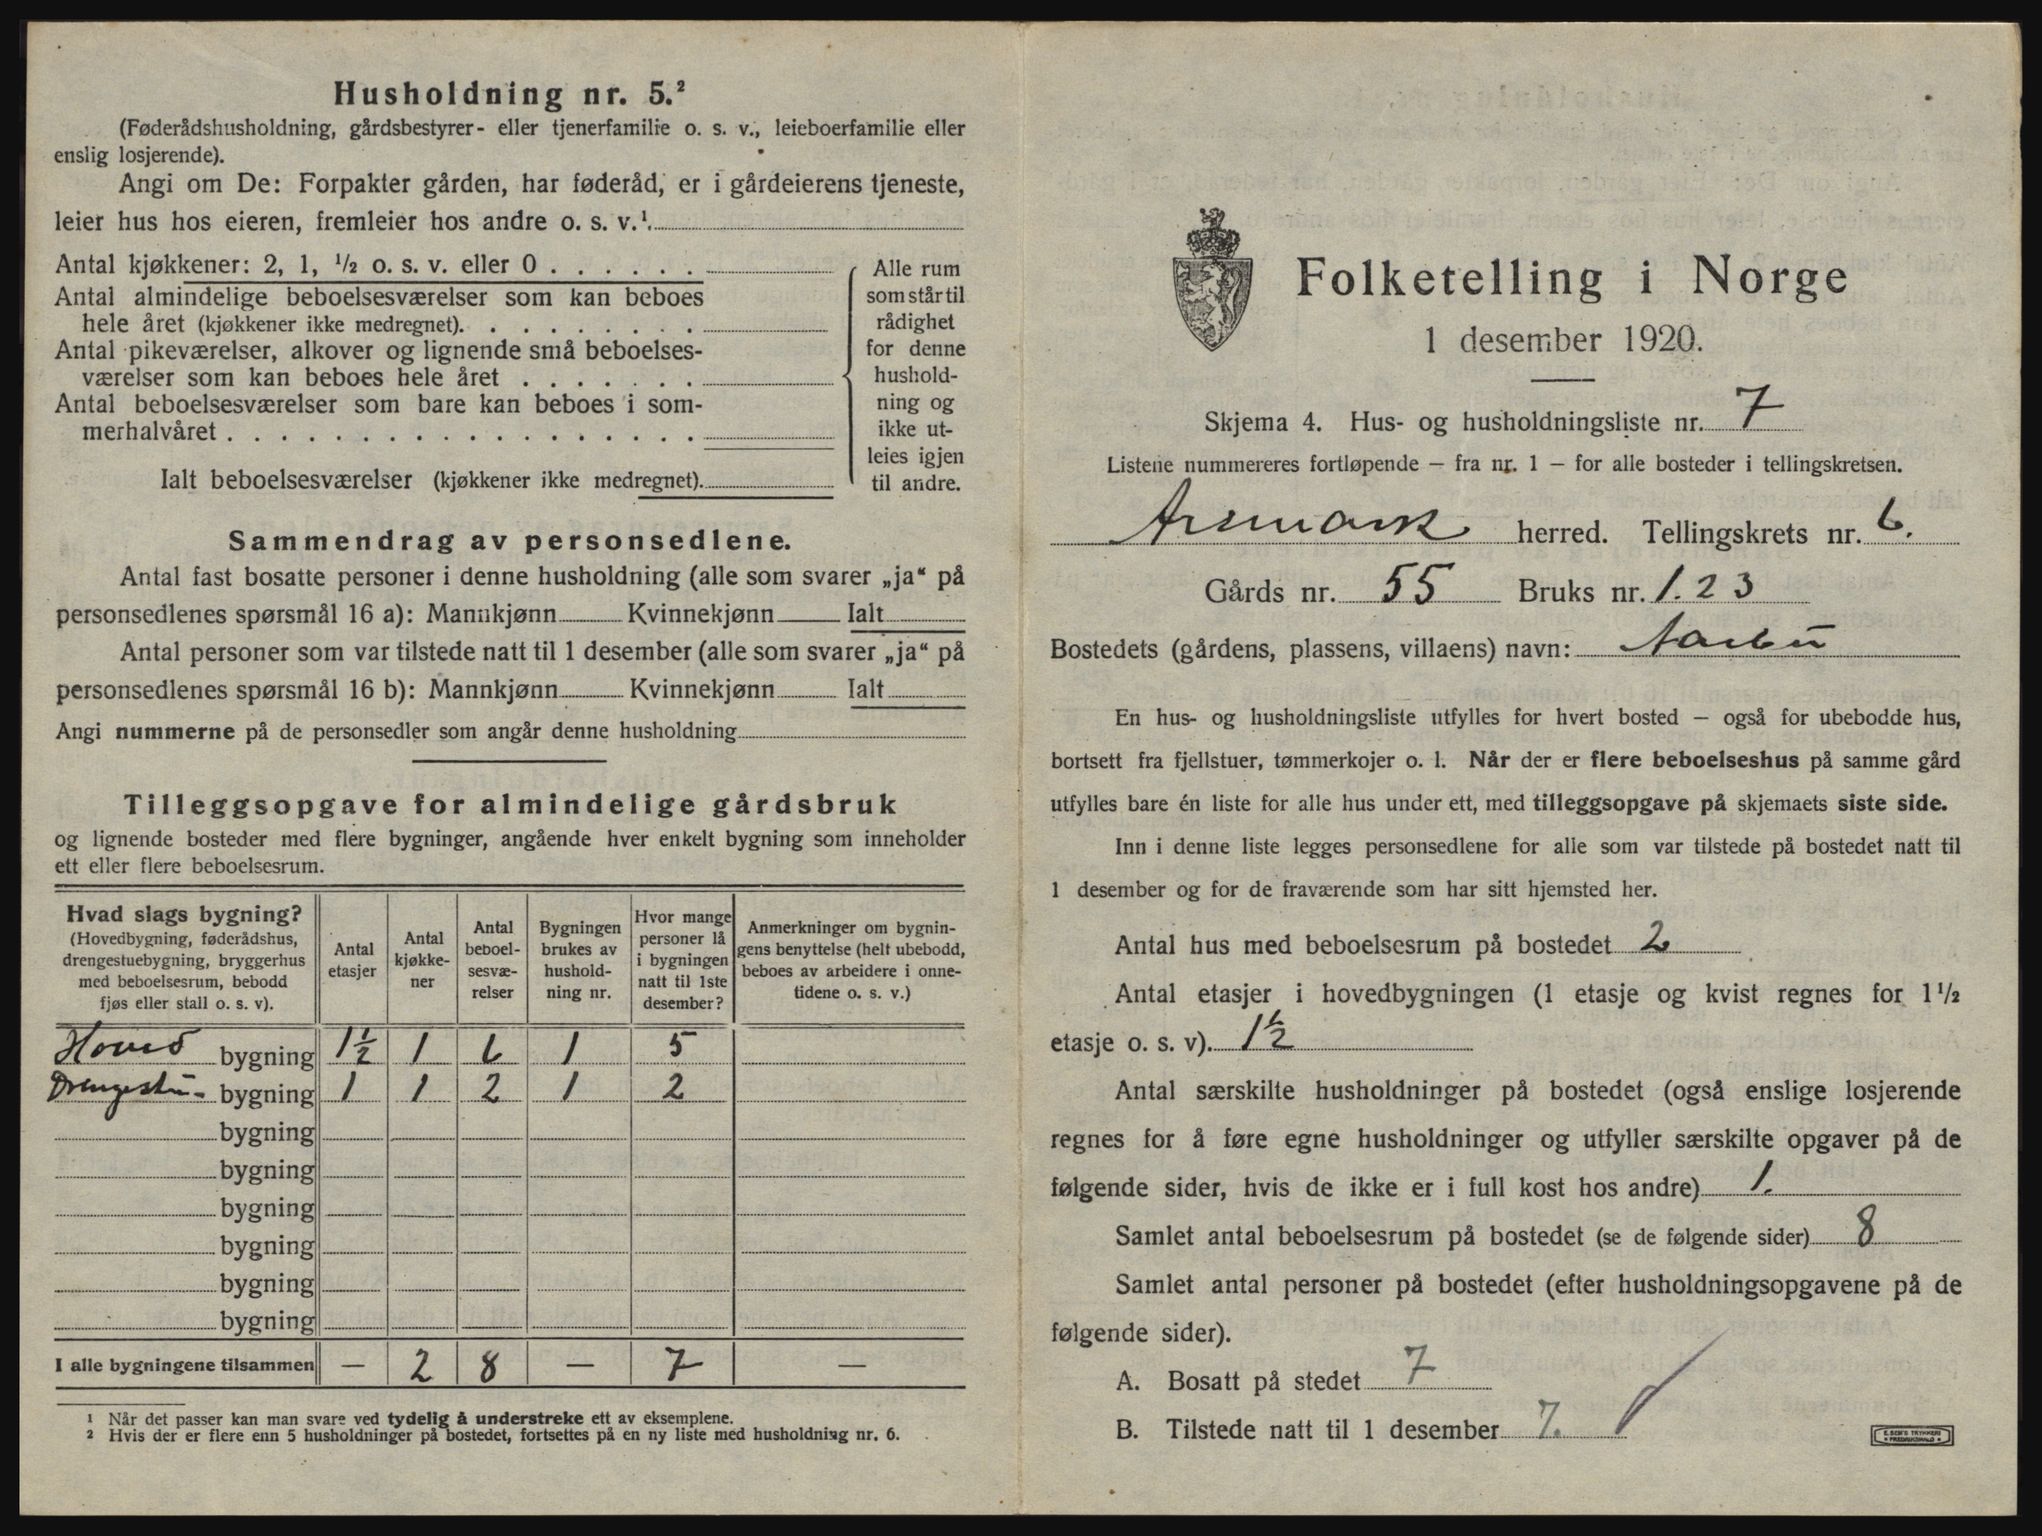 Husholdning nr. 5.²
(Føderådshusholdning, gårdsbestyrer- eller tjenerfamilie o. s. v., leieboerfamilie eller
enslig losjerende).
Angi om De: Forpakter gården, har føderåd, er i gårdeierens tjeneste,
leier hus hos eieren, fremleier hos andre o. s. v.¹.
Antal kjøkkener: 2, 1, ½ o. s. v. eller 0 . . . . . .
Antal almindelige beboelsesværelser som kan beboes
hele året (kjøkkener ikke medregnet). . . . . . . . .
Antal pikeværelser, alkover og lignende små beboelses-
værelser som kan beboes hele året . . . . . . .
Antal beboelsesværelser som bare kan beboes i som-
merhalvåret . . . . . . . . . . . . . . . . . .
Ialt beboelsesværelser (kjøkkener ikke medregnet).
Alle rum
som står til
rådighet
for denne
hushold-
ning og
ikke ut-
leies igjen
til andre.
Sammendrag av personsedlene.
Antal fast bosatte personer i denne husholdning (alle som svarer „ja“ på
personsedlenes spørsmål 16 a): Mannkjønn Kvinnekjønn Ialt
Antal personer som var tilstede natt til 1 desember (alle som svarer „ja“ på
personsedlenes spørsmål 16 b): Mannkjønn Kvinnekjønn Ialt
Angi nummerne på de personsedler som angår denne husholdning
Tilleggsopgave for almindelige gårdsbruk
og lignende bosteder med flere bygninger, angående hver enkelt bygning som inneholder
ett eller flere beboelsesrum.
Hvad slags bygning?
(Hovedbygning, føderådshus,
drengestuebygning, bryggerhus
med beboelsesrum, bebodd
fjøs eller stall o. s. v).
Antal
etasjer
Antal
kjøkke-
ner
Antal
beboel-
sesvæ-
relser
Bygningen
brukes av
hushold-
ning nr.
Hvor mange
personer lå
i bygningen
natt til 1ste
desember?
Anmerkninger om bygnin-
gens benyttelse (helt ubebodd,
beboes av arbeidere i onne-
tidene o. s. v.)
Hoved bygning 1½ 1 6 1 5
Drengestu- bygning 1 1 2 1 2
bygning
bygning
bygning
bygning
bygning
bygning
I alle bygningene tilsammen — 2 8 — 7 —
¹ Når det passer kan man svare ved tydelig å understreke ett av eksemplene.
² Hvis der er flere enn 5 husholdninger på bostedet, fortsettes på en ny liste med husholdning nr. 6.
Folketelling i Norge
1 desember 1920.
Skjema 4. Hus- og husholdningsliste nr. 7
Listene nummereres fortløpende — fra nr. 1 — for alle bosteder i tellingskretsen.
Aremark herred. Tellingskrets nr. 6.
Gårds nr. 55 Bruks nr. 1. 2 3
Bostedets (gårdens, plassens, villaens) navn: Aarbu
En hus- og husholdningsliste utfylles for hvert bosted — også for ubebodde hus,
bortsett fra fjellstuer, tømmerkojer o. l. Når der er flere beboelseshus på samme gård
utfylles bare én liste for alle hus under ett, med tilleggsopgave på skjemaets siste side.
Inn i denne liste legges personsedlene for alle som var tilstede på bostedet natt til
1 desember og for de fraværende som har sitt hjemsted her.
Antal hus med beboelsesrum på bostedet 2
Antal etasjer i hovedbygningen (1 etasje og kvist regnes for 1½
etasje o. s. v). 1½
Antal særskilte husholdninger på bostedet (også enslige losjerende
regnes for å føre egne husholdninger og utfyller særskilte opgaver på de
følgende sider, hvis de ikke er i full kost hos andre) 1.
Samlet antal beboelsesrum på bostedet (se de følgende sider) 8
Samlet antal personer på bostedet (efter husholdningsopgavene på de
følgende sider).
A. Bosatt på stedet 7
B. Tilstede natt til 1 desember 7.